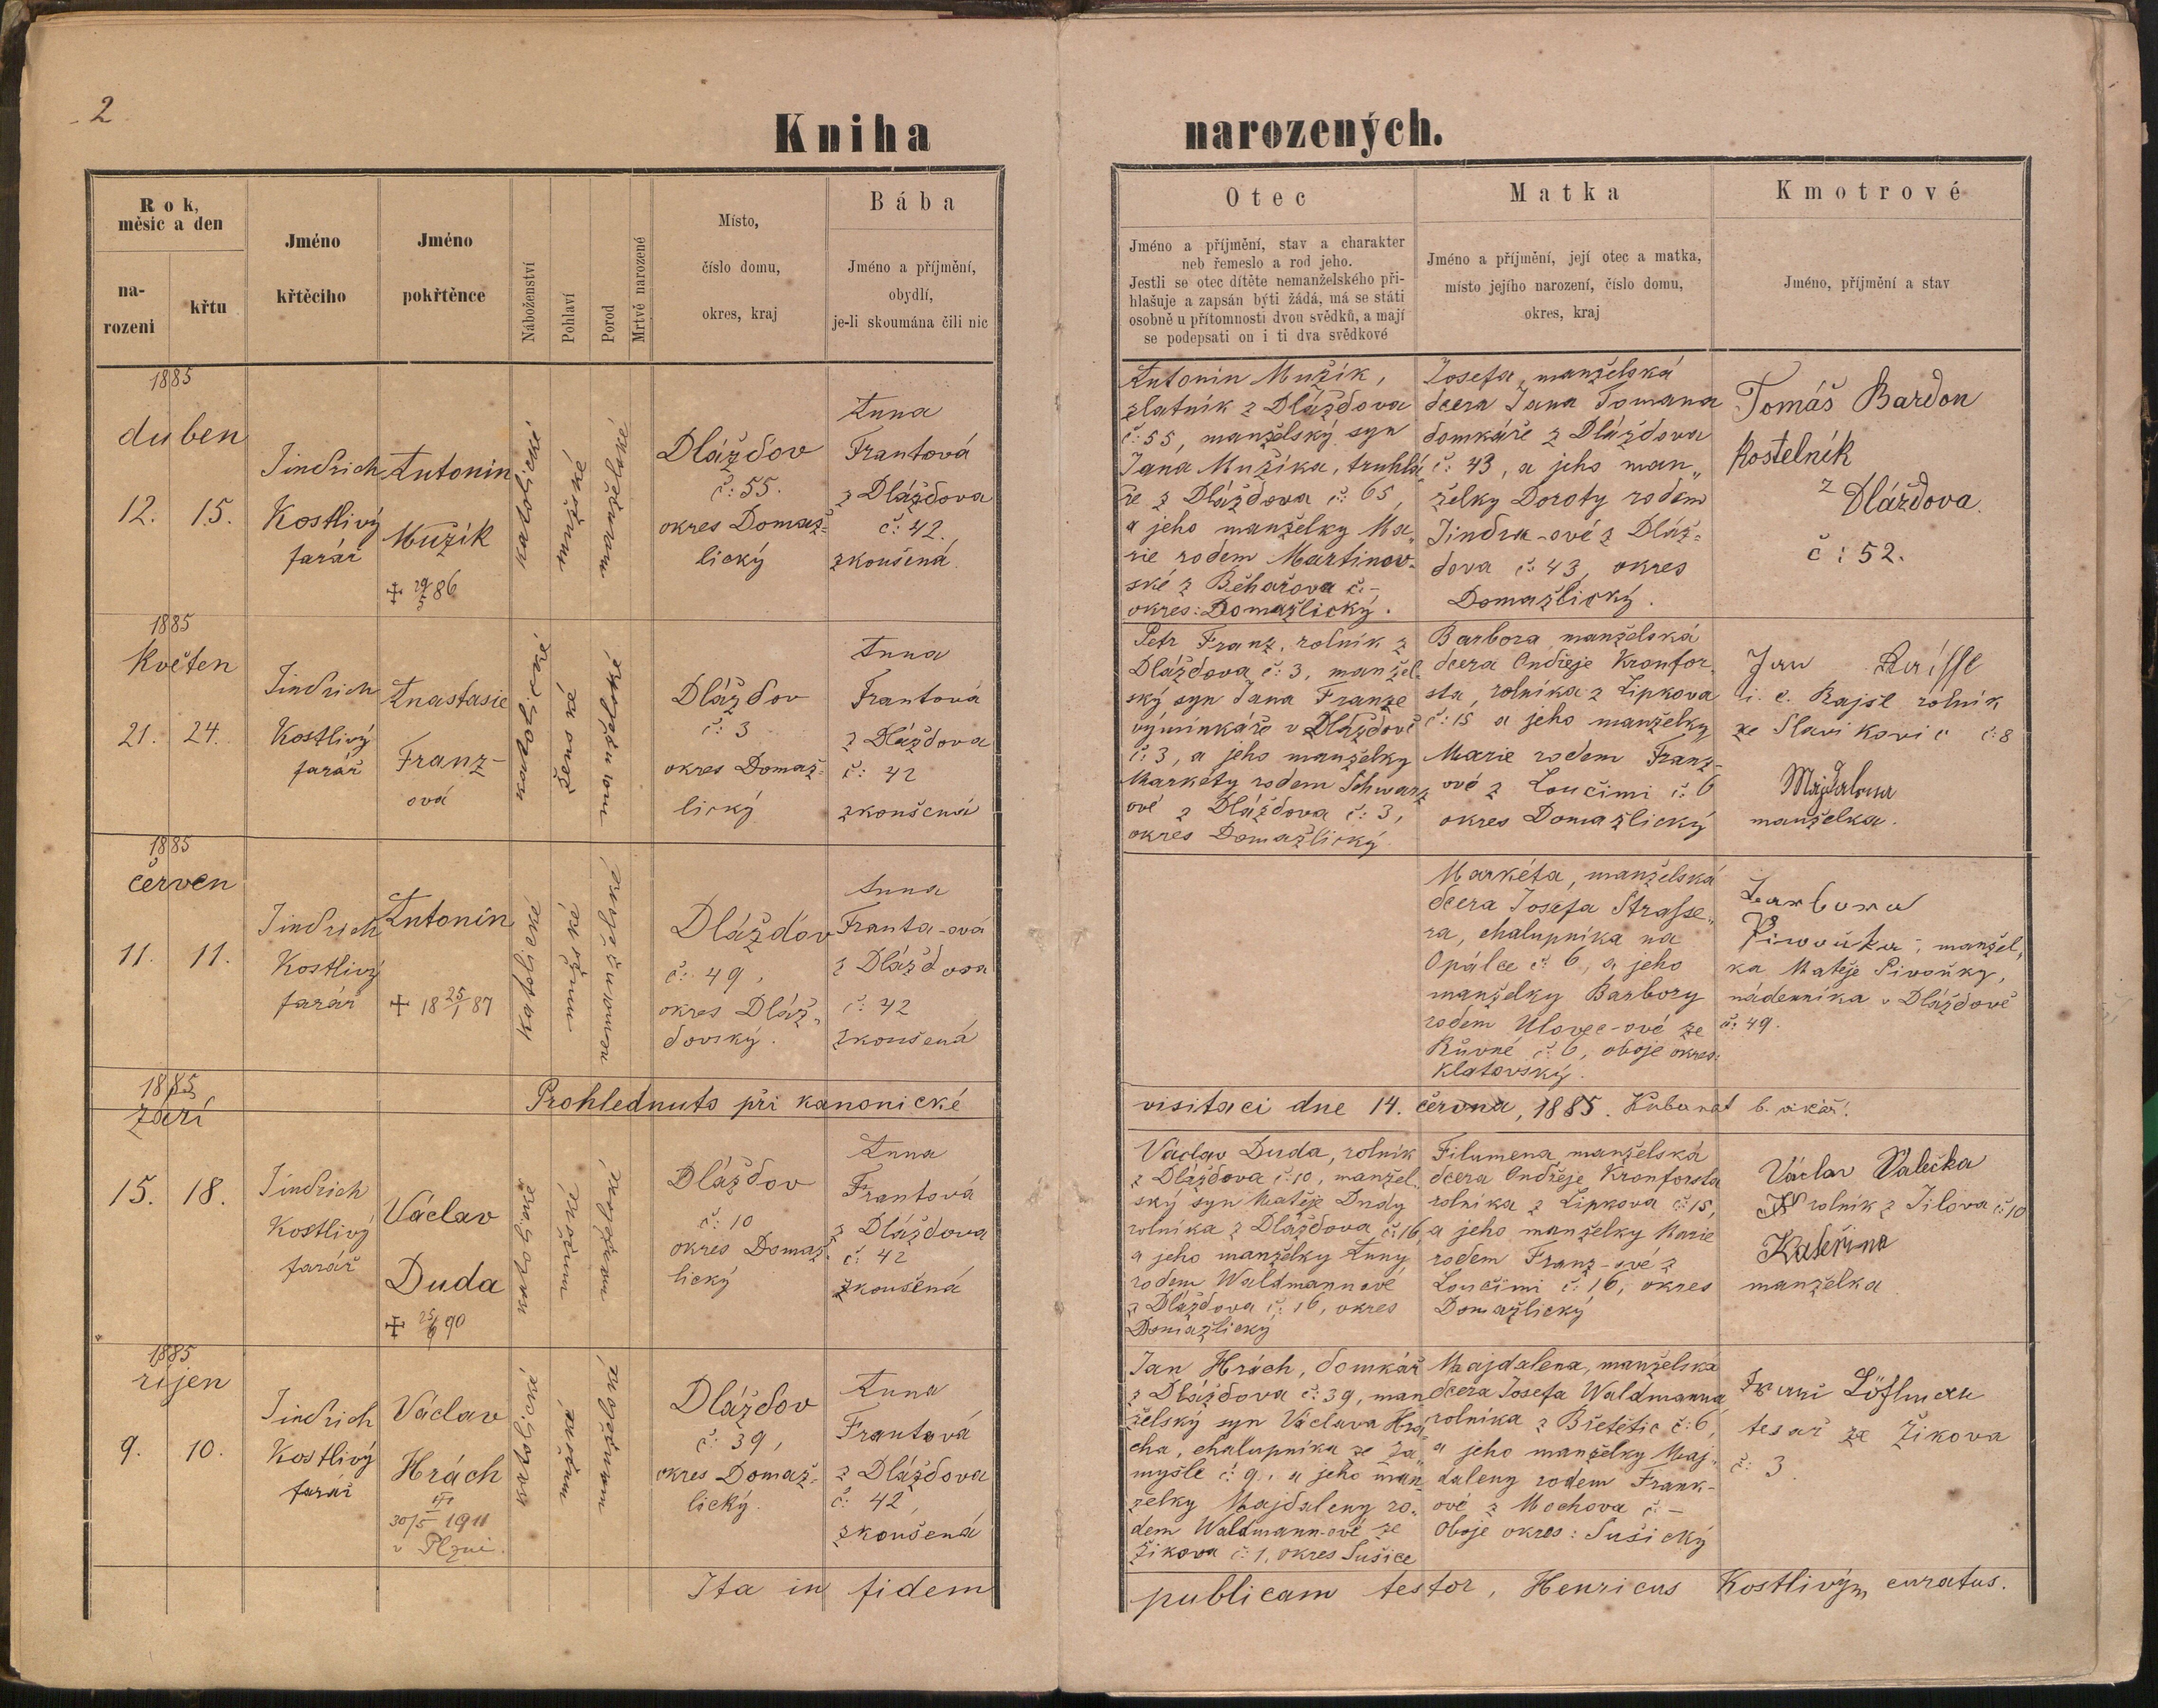 2
Kniha narozených.
Rok,
měsíc a den
na-
rozeni
křtu
Jméno
křtěciho
Jméno
pokřtěnce
Náboženství
Pohlaví
Porod
Mrtvě narozené
Místo,
číslo domu,
okres, kraj
Bába
Jméno a příjmění,
obydlí,
je-li skoumána čili nic
Otec
Jméno a příjmění, stav a charakter
neb řemeslo a rod jeho.
Jestli se otec dítěte nemanželského při-
hlašuje a zapsán býti žádá, má se státi
osobně u přítomnosti dvou svědků, a mají
se podepsati on i ti dva svědkové
Matka
Jméno a příjmění, její otec a matka,
místo jejího narození, číslo domu,
okres, kraj
Kmotrové
Jméno, příjmění a stav
1885
duben
12. 15.
Jindřich
Kostlivý
farář
Antonín
Mužík
✝ 29/5 86
katolické
mužské
manželské
Dlážďov
č: 55.
okres Domaž-
lický
Anna
Frantová
z Dlážďova
č: 42.
zkoušená.
Antonín Mužík,
zlatník z Dlážďova
č: 55, manželský syn
Jana Mužíka, truhlá
ře z Dlážďova č: 65,
a jeho manželky Ma„
rie rodem Martinov-
ské z Běhařova č. –
okres: Domažlický.
Josefa, manželská
dcera Jana Tomana
domkáře z Dlážďova
č: 43, a jeho man„
želky Doroty rodem
Jindra-ové z Dláž-
ďova č: 43, okres
Domažlický.
Tomáš Bardon
Kostelník
z Dlážďova.
č: 52.
1885
Květen
21. 24.
Jindřich
Kostlivý
farář
Anastasie
Franz-
ová
katolické
ženské
manželské
Dlážďov
č: 3
okres Domaž-
lický
Anna
Frantová
z Dlážďova
č: 42
zkoušená
Petr Franz, rolník z
Dlážďova č: 3, manžel-
ský syn Jana Franze
výminkáře v Dlážďově
č: 3, a jeho manželky
Markéty rodem Schwarz
ové z Dlážďova č: 3,
okres Domažlický.
Barbora manželská
dcera Ondřeje Kronfor„
sta, rolníka z Lipkova
č: 15 a jeho manželky
Marie rodem Franz-
ové z Loučimi č: 6
okres Domažlický
Jan
t. č. Rajšl rolník
ze Slavikovic č: 8
Majdalena
manželka.
1885
červen
11. 11.
Jindřich
Kostlivý
farář
Antonín
✝ 18 25/1 87
Katolické
mužské
nemanželské
Dlážďov
č: 49,
okres Dláž„
ďovský.
Anna
Franta-ová
z Dlážďova
č: 42
zkoušená
Markéta, manželská
dcera Josefa Strasse„
ra, chalupníka na
Opálce č: 6, a jeho
manželky Barbory
rodem Ulovec-ové ze
Růvné č: 6, oboje okres:
Klatovský.
Barbora
Pivoňka, manžel„
ka Matěje Pivoňky,
nádenníka v Dlážďově
č: 49.
Prohlednuto při kanonické visitaci dne 14. června, 1885. Kubanat b. vikář.
1885
září
15. 18.
Jindřich
Kostlivý
farář
Václav
Duda
✝ 25/6 90
katolické
mužské
manželské
Dlážďov
č: 10
okres Domaž-
lický
Anna
Frantová
z Dlážďova
č: 42
zkoušená
Václav Duda, rolník
z Dlážďova č: 10, manžel-
ský syn Matěje Dudy
rolníka z Dlážďova č: 16,
a jeho manželky Anny
rodem Waldmannové
z Dlážďova č: 16, okres
Domažlický
Filumena manželská
dcera Ondřeje Kronforsta
rolníka z Lipkova č: 15,
a jeho manželky Marie
rodem Franz-ové z
Loučimi č: 16, okres
Domažlický
Václav Valečka
rolník z Jilova č: 10
Kateřina
manželka
1885
říjen
9. 10.
Jindřich
Kostlivý
farář
Václav
Hrách
30/5 1911
v Plzni.
katolické
mužské
manželské
Dlážďov
č: 39,
okres Domaž-
lický.
Anna
Frantová
z Dlážďova
č: 42,
zkoušená
Jan Hrách, domkář
z Dlážďova č: 39, man
želský syn Václava Hrá
cha, chalupníka ze Za„
myšle č: 9, a jeho man
želky Majdaleny ro„
dem Waldmann-ové ze
Žikova č: 1, okres Sušice
Majdalena, manželská
dcera Josefa Waldmanna
rolníka z Břetětic č: 6,
a jeho manželky Maj„
daleny rodem Frank-
ové z Mochova č. –
Oboje okres: Sušický
tesař ze Žikova
č: 3.
Ita in fidem publicam testor, Henricus Kostlivý, curatus.